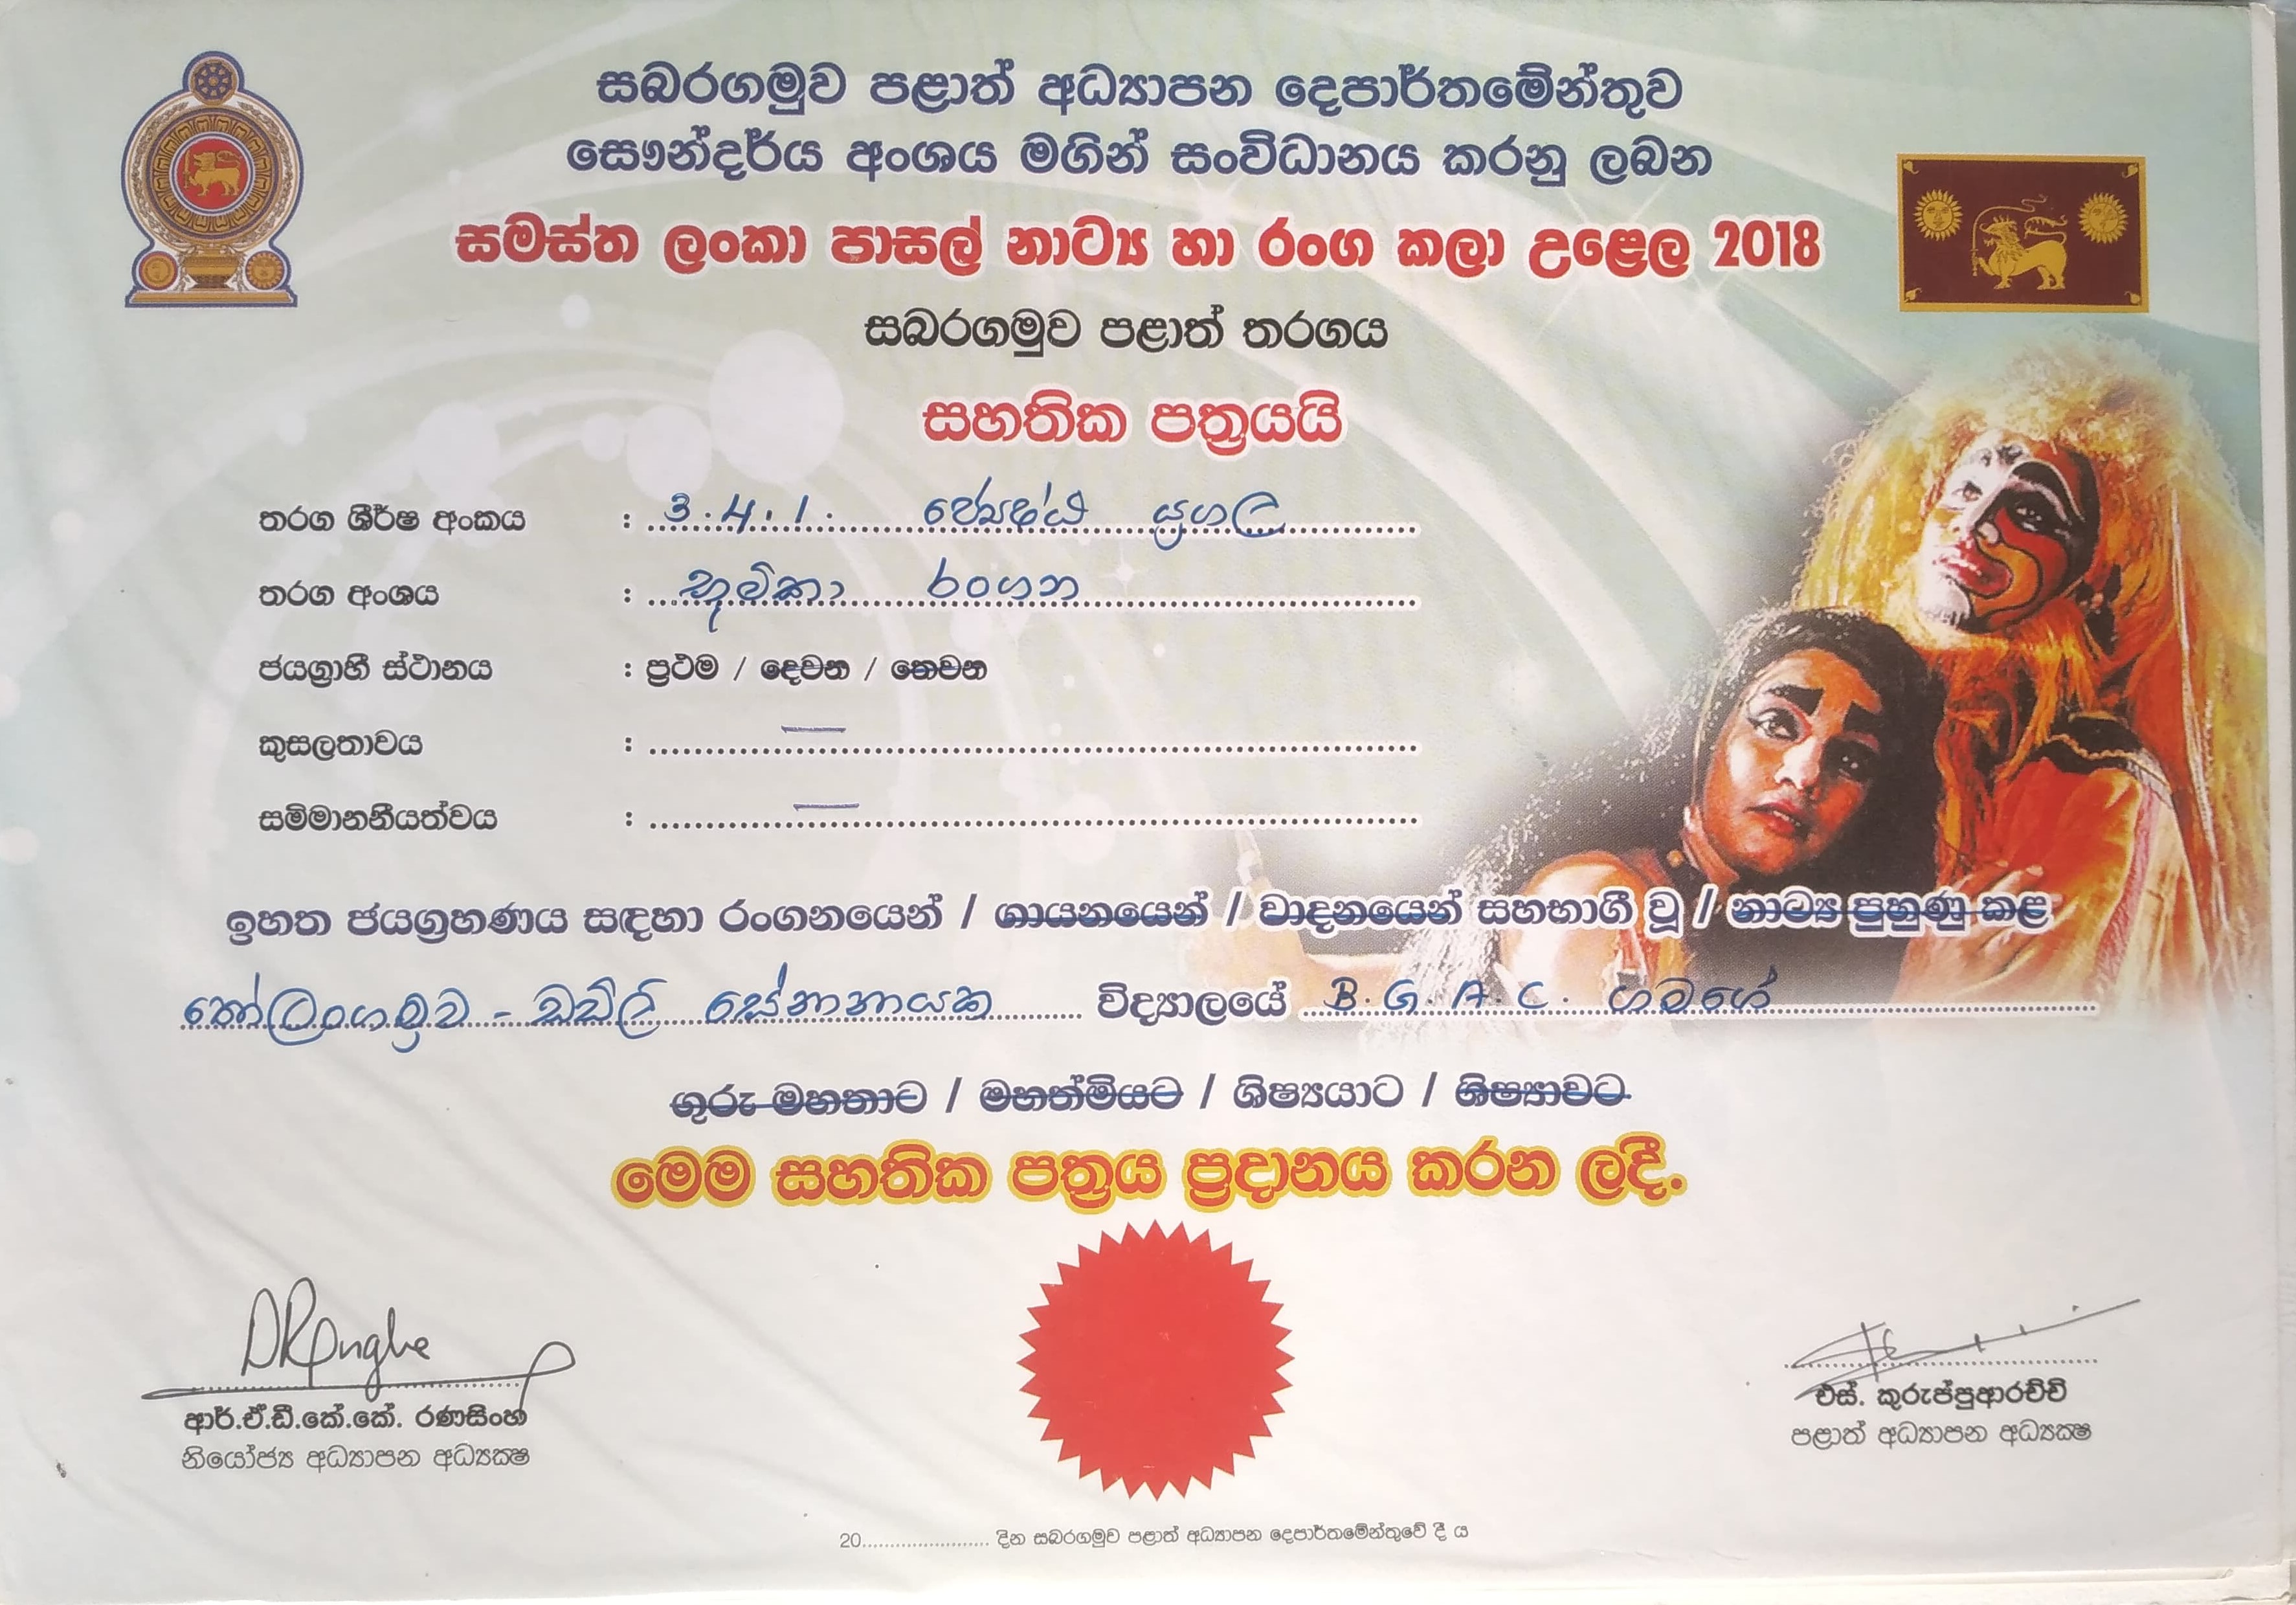 සබරගමුව පළාත් අධ්‍යාපන දෙපාර්තමේන්තුව
සෞන්දර්ය අංශය මගින් සංවිධානය කරනු ලබන
සමස්ත ලංකා පාසල් නාට්‍ය හා රංග කලා උළෙල 2018
සබරගමුව පළාත් තරගය
සහතික පත්‍රයයි
තරග ශීර්ෂ අංකය : 3.4.1. ජ්‍යේෂ්ඨ යුගල
තරග අංශය : භූමිකා රංගන
ජයග්‍රාහී ස්ථානය : ප්‍රථම / දෙවන / තෙවන
කුසලතාවය : —
සම්මානනීයත්වය : —
ඉහත ජයග්‍රහණය සඳහා රංගනයෙන් / ගායනයෙන් / වාදනයෙන් සහභාගී වූ / නාට්‍ය පුහුණු කළ
තෝලංගමුව - ඩඩ්ලි සේනානායක විද්‍යාලයේ B.G.A.C. ගමගේ
ගුරු මහතාට / මහත්මියට / ශිෂ්‍යයාට / ශිෂ්‍යාවට
මෙම සහතික පත්‍රය ප්‍රදානය කරන ලදී.
ආර්.ඒ.ඩී.කේ.කේ. රණසිංහ
නියෝජ්‍ය අධ්‍යාපන අධ්‍යක්ෂ
එස්. කුරුප්පුආරච්චි
පළාත් අධ්‍යාපන අධ්‍යක්ෂ
20....................... දින සබරගමුව පළාත් අධ්‍යාපන දෙපාර්තමේන්තුවේ දී ය